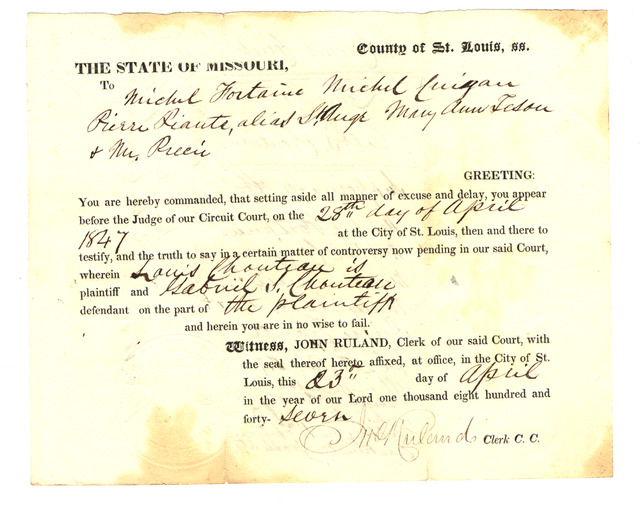 County of St. Louis, ss.
THE STATE OF MISSOURI,
To Michel Fortaine Michel
Pierre Piante, alias St. Ange Mary Ann Teson
& Mr.
GREETING:
You are hereby commanded, that setting aside all manner of excuse and delay, you appear
before the Judge of our Circuit Court, on the 28th day of April
1847 at the City of St. Louis, then and there to
testify, and the truth to say in a certain matter of controversy now pending in our said Court,
wherein Louis Chouteau is
plaintiff and Gabriel S. Chouteau
defendant on the part of the plaintiff
and herein you are in no wise to fail.
Witness, JOHN RULAND, Clerk of our said Court, with
the seal thereof hereto affixed, at office, in the City of St.
Louis, this 23d day of April
in the year of our Lord one thousand eight hundred and
forty- seven
Jno Ruland Clerk C. C.